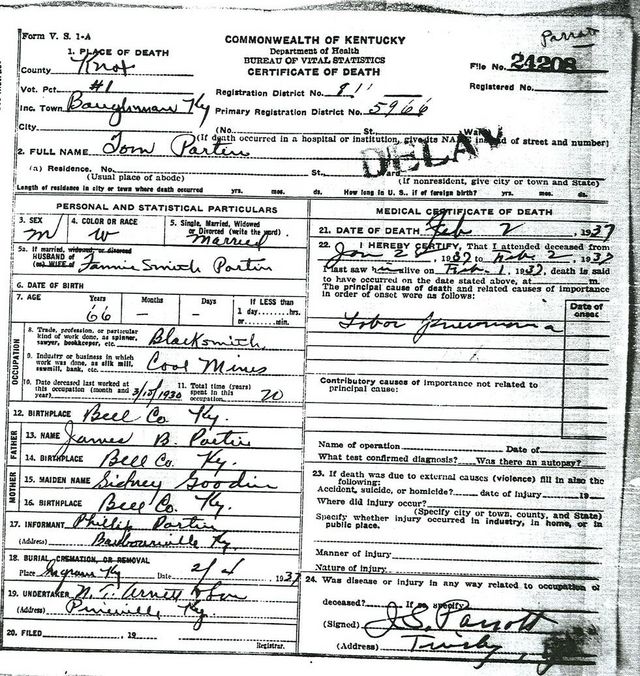 Parrott
Form V. S. 1-A
COMMONWEALTH OF KENTUCKY
Department of Health
BUREAU OF VITAL STATISTICS
CERTIFICATE OF DEATH
File No. 24208
Registered No.
1. PLACE OF DEATH
County Knox
Vot. Pct. #1
Registration District No.
Inc. Town Baughman Ky
Primary Registration District No. 5966
City
(No. St. Ward
(If death occurred in a hospital or institution, give its NAME instead of street and number)
2. FULL NAME Tom Partin
DELAY
(a) Residence. No. St.
(Usual place of abode)
(If nonresident, give city or town and State)
Length of residence in city or town where death occurred yrs. mos. ds. How long in U. S., if of foreign birth? yrs. mos. ds.
PERSONAL AND STATISTICAL PARTICULARS
3. SEX
m
4. COLOR OR RACE
W
5. Single, Married, Widowed
or Divorced (write the word)
Married
5a. If married, widowed, or divorced
HUSBAND of
(or) WIFE of Fannie Smith Partin
6. DATE OF BIRTH
7. AGE Years Months Days If LESS than
66 — — 1 day ....hrs.
or....min.
OCCUPATION
8. Trade, profession, or particular
kind of work done, as spinner,
sawyer, bookkeeper, etc. Blacksmith
9. Industry or business in which
work was done, as silk mill,
sawmill, bank, etc. Coal Mines
10. Date deceased last worked at
this occupation (month and
year) 3/15/1930
11. Total time (years)
spent in this
occupation 20
12. BIRTHPLACE Bell Co. Ky.
FATHER
13. NAME James B. Partin
14. BIRTHPLACE Bell Co. Ky.
MOTHER
15. MAIDEN NAME Sidney Goodin
16. BIRTHPLACE Bell Co. Ky.
17. INFORMANT Phillip Partin
(Address) Barbourville Ky
18. BURIAL, CREMATION, OR REMOVAL
Place Ingram Ky Date 2/4 1937
19. UNDERTAKER N. T. Arnett & Son
(Address) Pineville Ky.
20. FILED , 19
Registrar.
MEDICAL CERTIFICATE OF DEATH
21. DATE OF DEATH Feb 2, 1937
22. I HEREBY CERTIFY, That I attended deceased from
Jan , 1937 to Feb 2, 1937
I last saw him alive on Feb. 1. 1937, death is said
to have occurred on the date stated above, at m.
The principal cause of death and related causes of importance
in order of onset were as follows:
Date of
onset
Lobor pneumonia
Contributory causes of importance not related to
principal cause:
Name of operation Date of
What test confirmed diagnosis? Was there an autopsy?
23. If death was due to external causes (violence) fill in also the
following:
Accident, suicide, or homicide? date of injury 19
Where did injury occur?
(Specify city or town, county, and State)
Specify whether injury occurred in industry, in home, or in
public place.
Manner of injury
Nature of injury
24. Was disease or injury in any way related to occupation of
deceased? If so, specify
(Signed) J. S. Parrott
(Address) Trosby, Ky